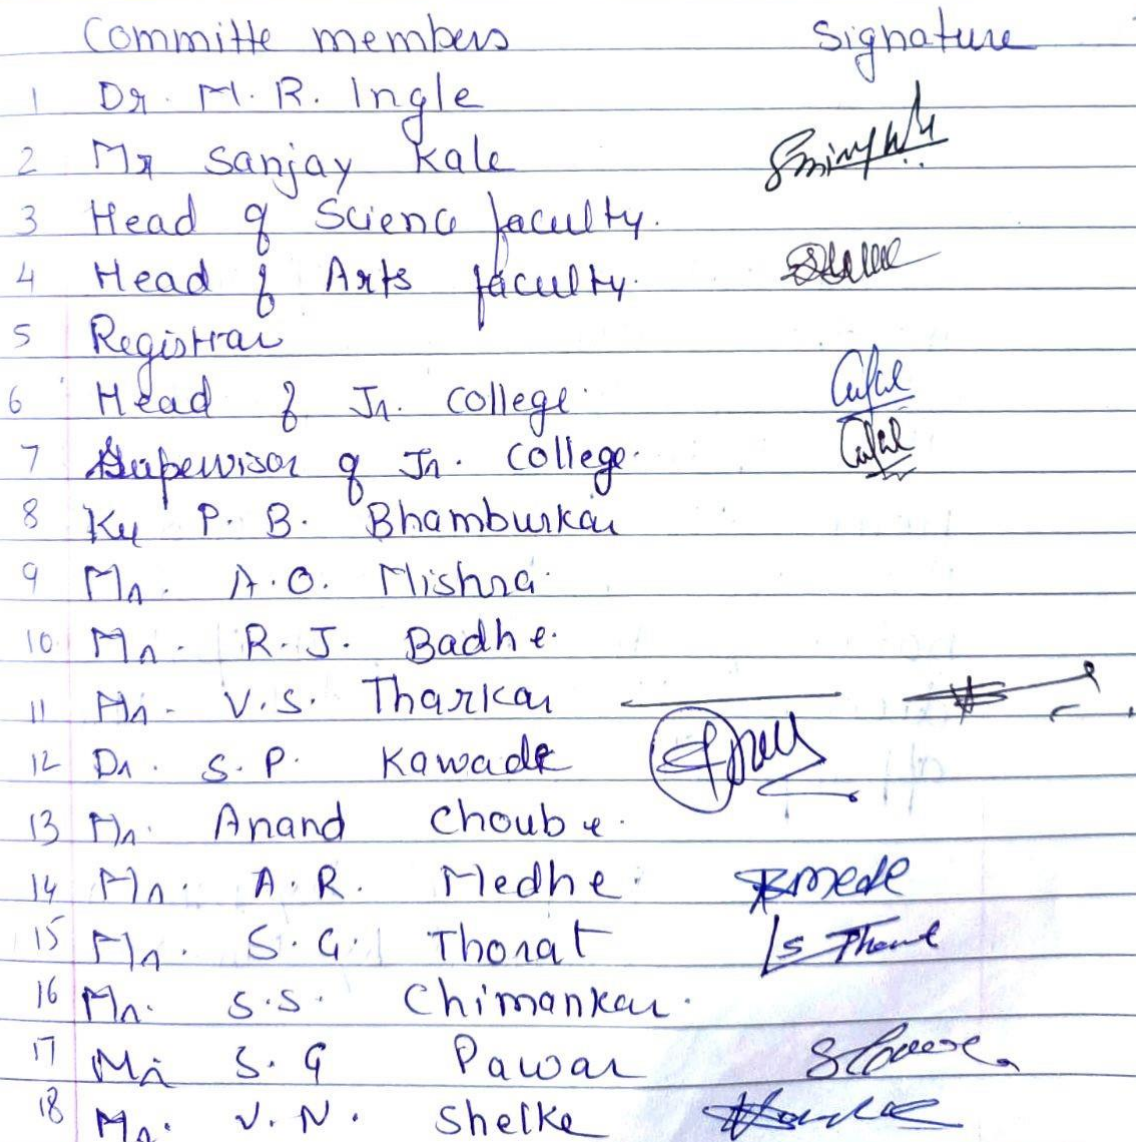 Committe members Signature
1 Dr. M. R. Ingle
2 Mr Sanjay Kale
3 Head of Science faculty.
4 Head of Arts faculty.
5 Registrar
6 Head of Jr. College.
7 Supervisor of Jr. College.
8 Ku P. B. Bhamburkar
9 Mr. A.O. Mishra.
10. Mr. R.J. Badhe.
11 Mr. V.S. Tharkar
12 Dr. S.P. Kawade
13 Mr. Anand Choube.
14 Mr. A.R. Medhe.
15 Mr. S.G. Thorat
16 Mr. S.S. Chimankar.
17 Mr S.G Pawar
18 Mr. V.N. Shelke